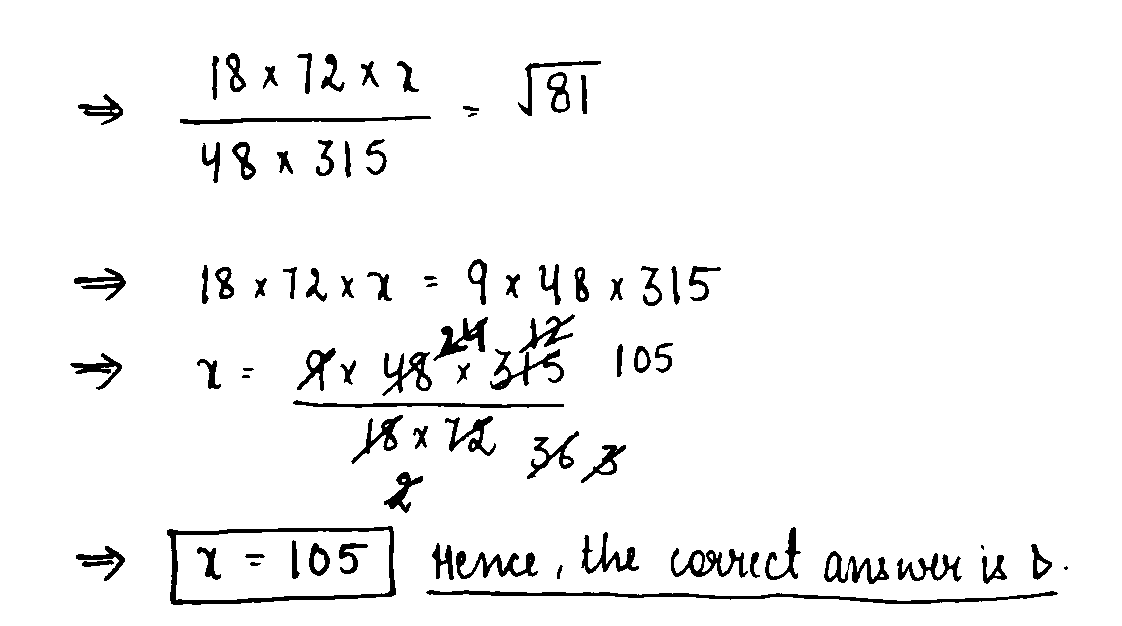 ⇒ (18 × 72 × x) / (48 × 315) = √81
⇒ 18 × 72 × x = 9 × 48 × 315
24 12
⇒ x = (9 × 48 × 315) / (18 × 72) 105
36 3
2
⇒ x = 105 Hence, the correct answer is D.